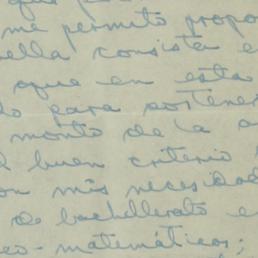 me permito propo
ella consista e
que en esta
do para sostene
monto de la a
l buen criterio
on mis necesidad
de bachillerato e
co-matemáticos;